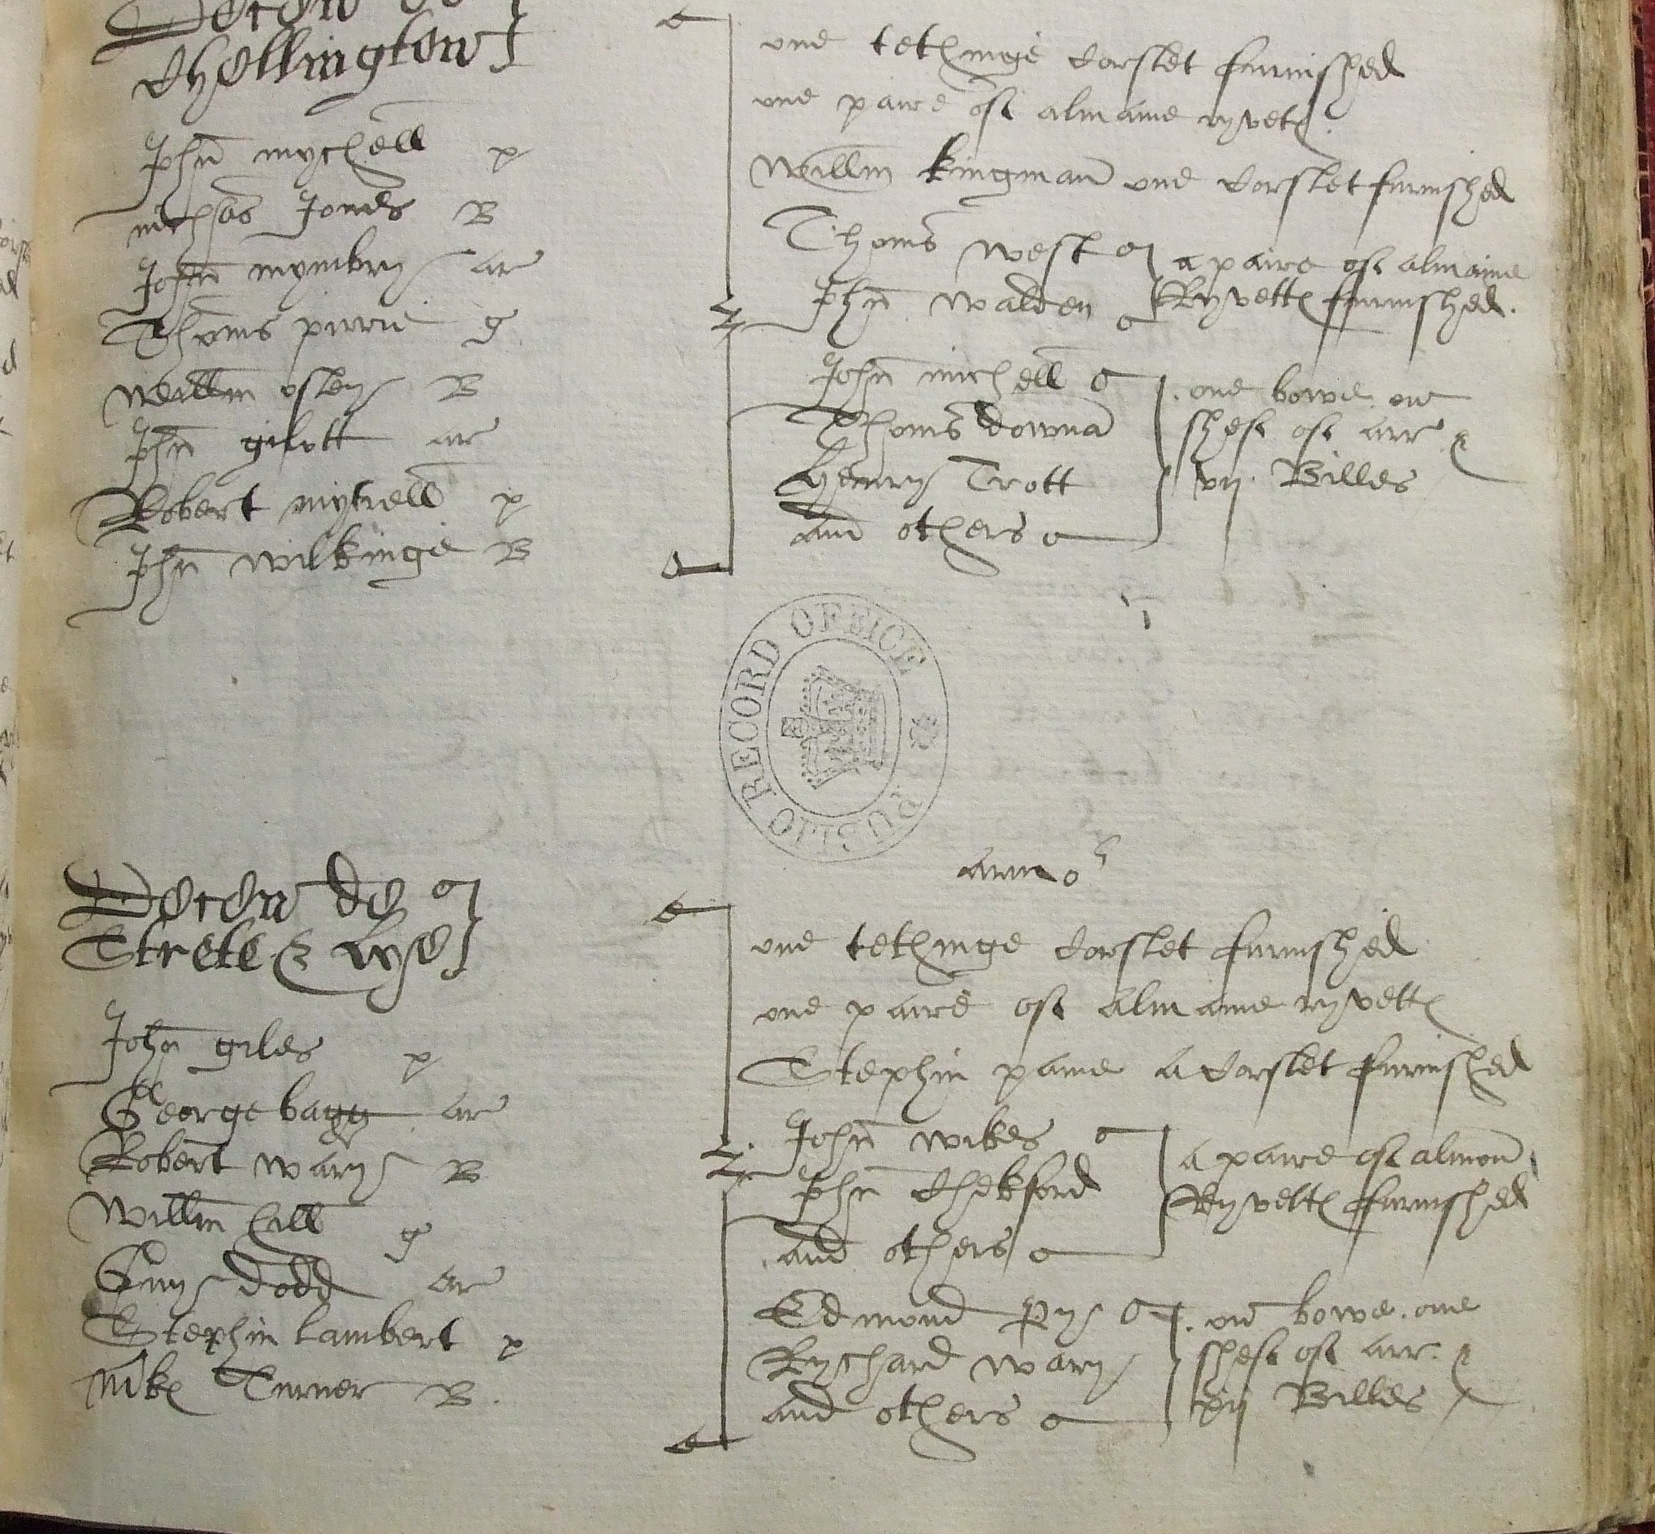 Decen de
Chellington
John mychell p
nichas Jones B
John mymbry ar
Thoms purrie g
Willm osley B
John gilott ar
Robert mytiell p
John wilkinge B
one tethinge corslet furnished
one paire of almaine ryvett
Willm kingman one corslet furnished
Thoms west
John walden
a paire of almaine
Ryvett furnished.
John michell
Thoms downa
Henry Trott
and others
one bowe one
shef of arr
vij Billes
PUBLIC RECORD OFFICE
armor
Decen de
Strete & Lye
John giles p
George bagg ar
Robert wary B
Willm hill g
Guy dodd ar
Stephin lambert p
Turner B
one tethinge corslet furnished
one paire of almaine ryvett
Stephin paine a corslet furnished
John wikes
John Chekford
and others
a paire of almon
Ryvett furnished
Edmond Py
Rychard wary
and others
on bowe one
shef of arr
Billes